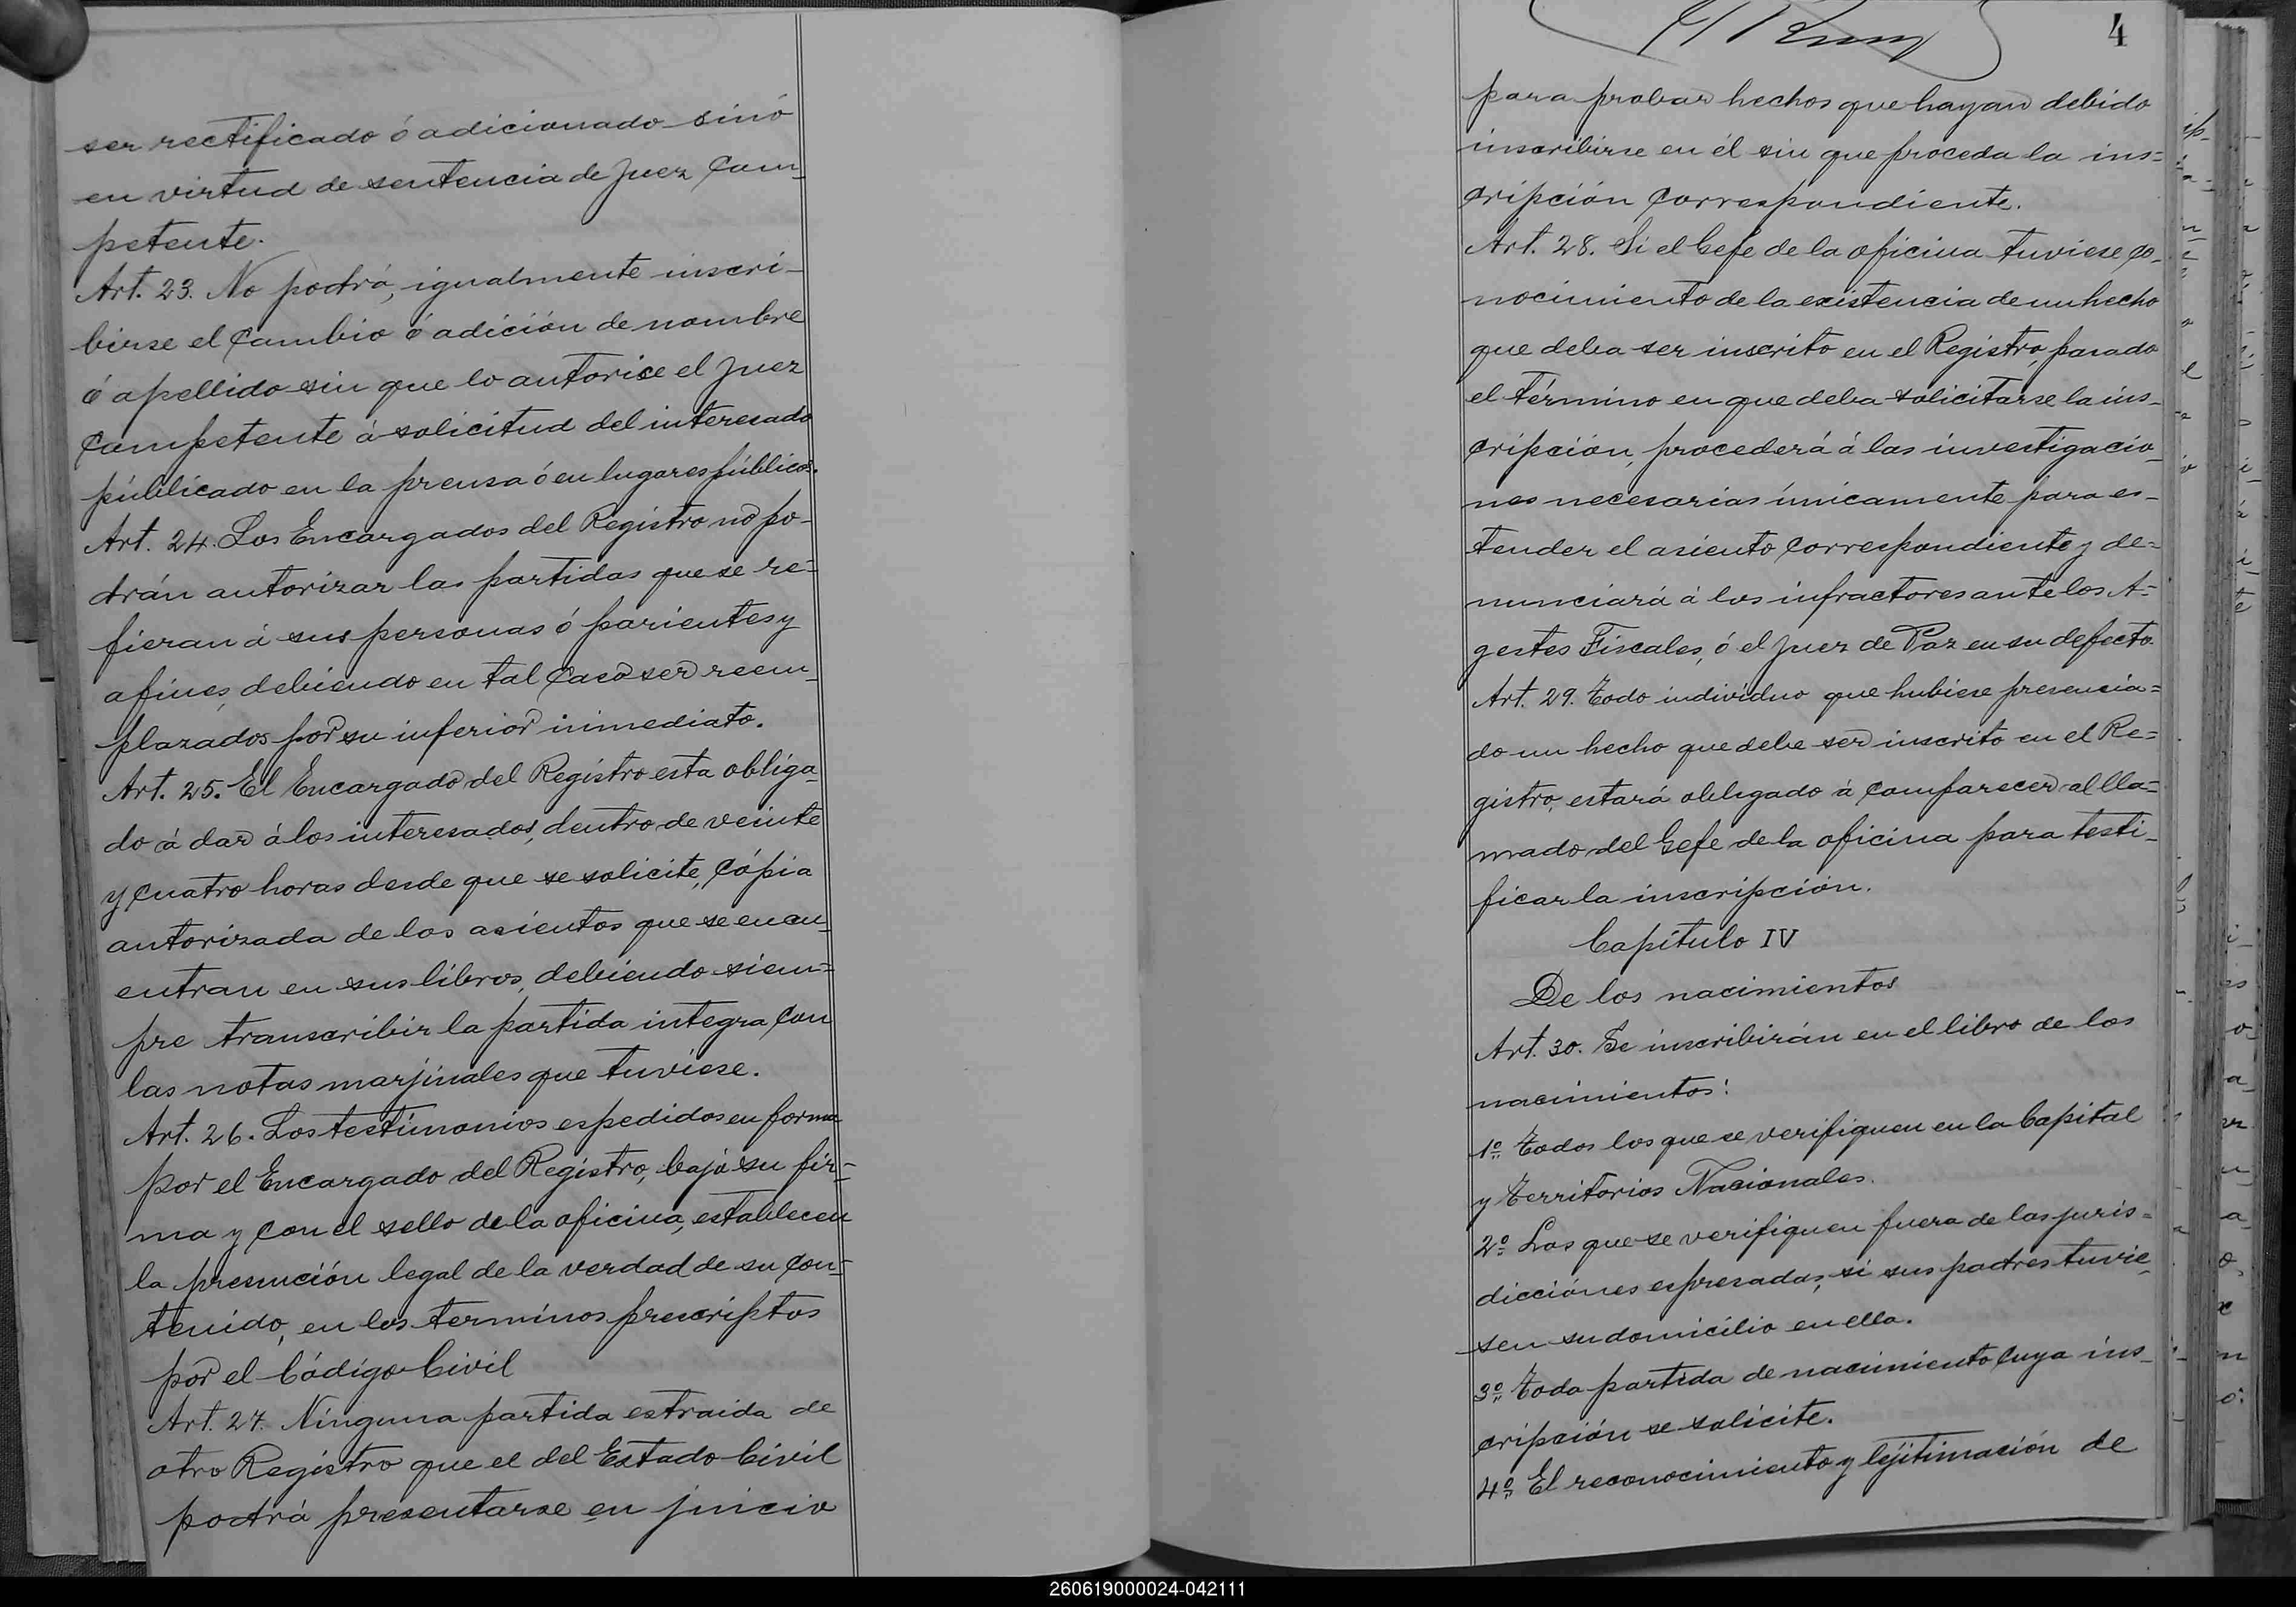 ser rectificado ó adicionado sinó
en virtud de sentencia de Juez Com_
petente.
Art. 23. No podrá, igualmente inscri_
birse el Cambio ó adición de nombre
ó apellido sin que lo autorice el Juez
Competente á solicitud del interesado
públicado en la prensa ó en lugares públicos.
Art. 24. Los Encargados del Registro no po_
drán autorizar las partidas que se re=
fieran á sus personas ó parientes y
afines, debiendo en tal Caso ser reem_
plazados por su inferior inmediato.
Art. 25. El Encargado del Registro esta obliga_
do á dar á los interesados, dentro de veinte
y Cuatro horas desde que se solicite, Cópia
autorizada de los asientos que se encu_
entran en sus libros, debiendo siem=
pre transcribir la partida integra Con
las notas marjinales que tuviese.
Art. 26. Los testimonios espedidos en forma
por el Encargado del Registro, bajo su fir=
ma y Con el sello de la oficina, establecen
la presunción legal de la verdad de su Con=
tenido, en los terminos prescriptos
por el Código Civil
Art. 27. Ninguna partida estraida de
otro Registro que el del Estado Civil
podrá presentarse en juicio
4
para probar hechos que hayan debido
inscribirse en él sin que proceda la ins=
cripción Correspondiente.
Art. 28. Si el Gefe de la oficina tuviese Co_
nocimiento de la existencia de un hecho
que deba ser inscrito en el Registro, pasado
el término en que deba solicitarse la ins_
cripción, procederá á las investigacio_
nes necesarias únicamente para es_
tender el asiento Correspondiente y de=
nunciará á los infractores ante los A=
gentes Fiscales, ó el Juez de Paz en su defecto.
Art. 29. Todo individuo que hubiese presencia=
do un hecho que debe ser inscrito en el Re=
gistro, estará obligado á Comparecer al lla=
mado del Gefe de la oficina para testi_
ficar la inscripción.
Capítulo IV
De los nacimientos
Art. 30. Se inscribirán en el libro de los
nacimientos:
1º Todos los que se verifiquen en la Capital
y Territorios Nacionales.
2º Los que se verifiquen fuera de las juris=
dicciónes espresadas, si sus padres tuvie_
sen su domicilio en ella.
3º Toda partida de nacimiento Cuya ins_
cripción se solicite.
4º El reconocimiento y lejitimación de
260619000024-042111